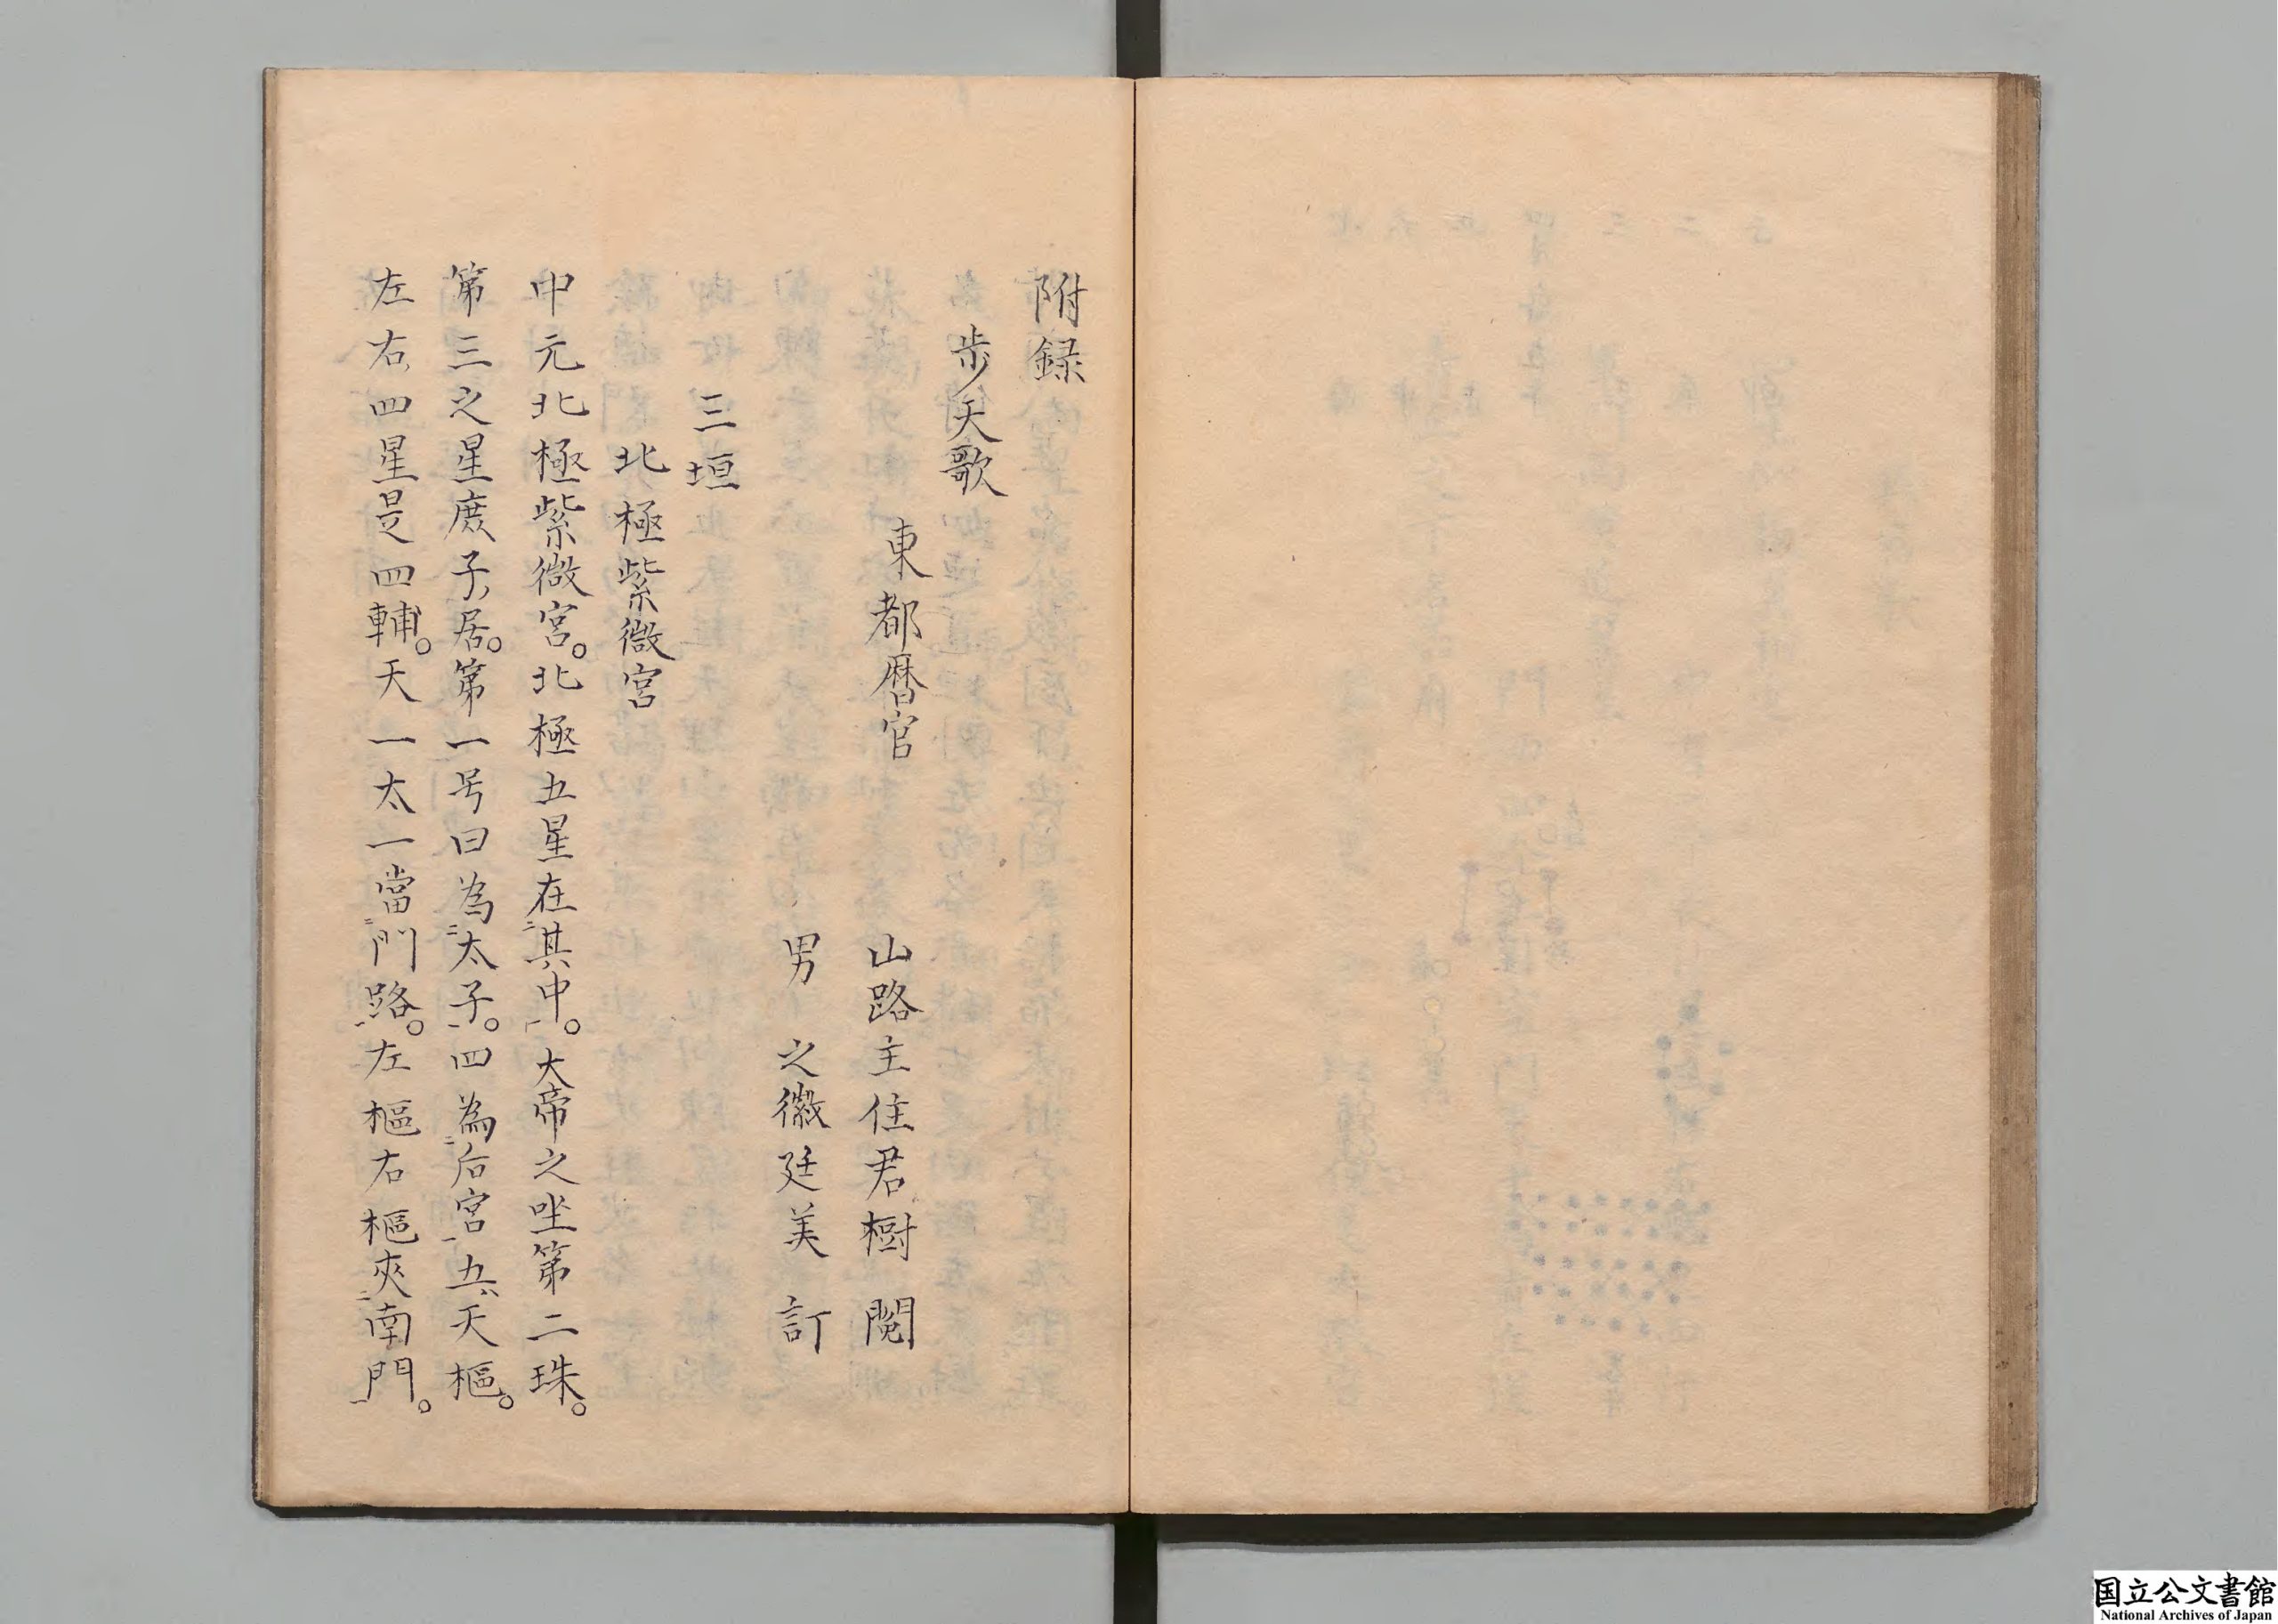 附録
歩天歌
東都暦官
山路主住君樹　閲
男　之徽廷美　訂
三垣
北極紫微宮
中元北極紫微宮。北極五星在其中。大帝之坐第二珠。
第三之星庶子居。第一号曰為太子。四為后宮五天樞。
左右四星是四輔。天一太一當門路。左樞右樞夾南門。
国立公文書館
National Archives of Japan